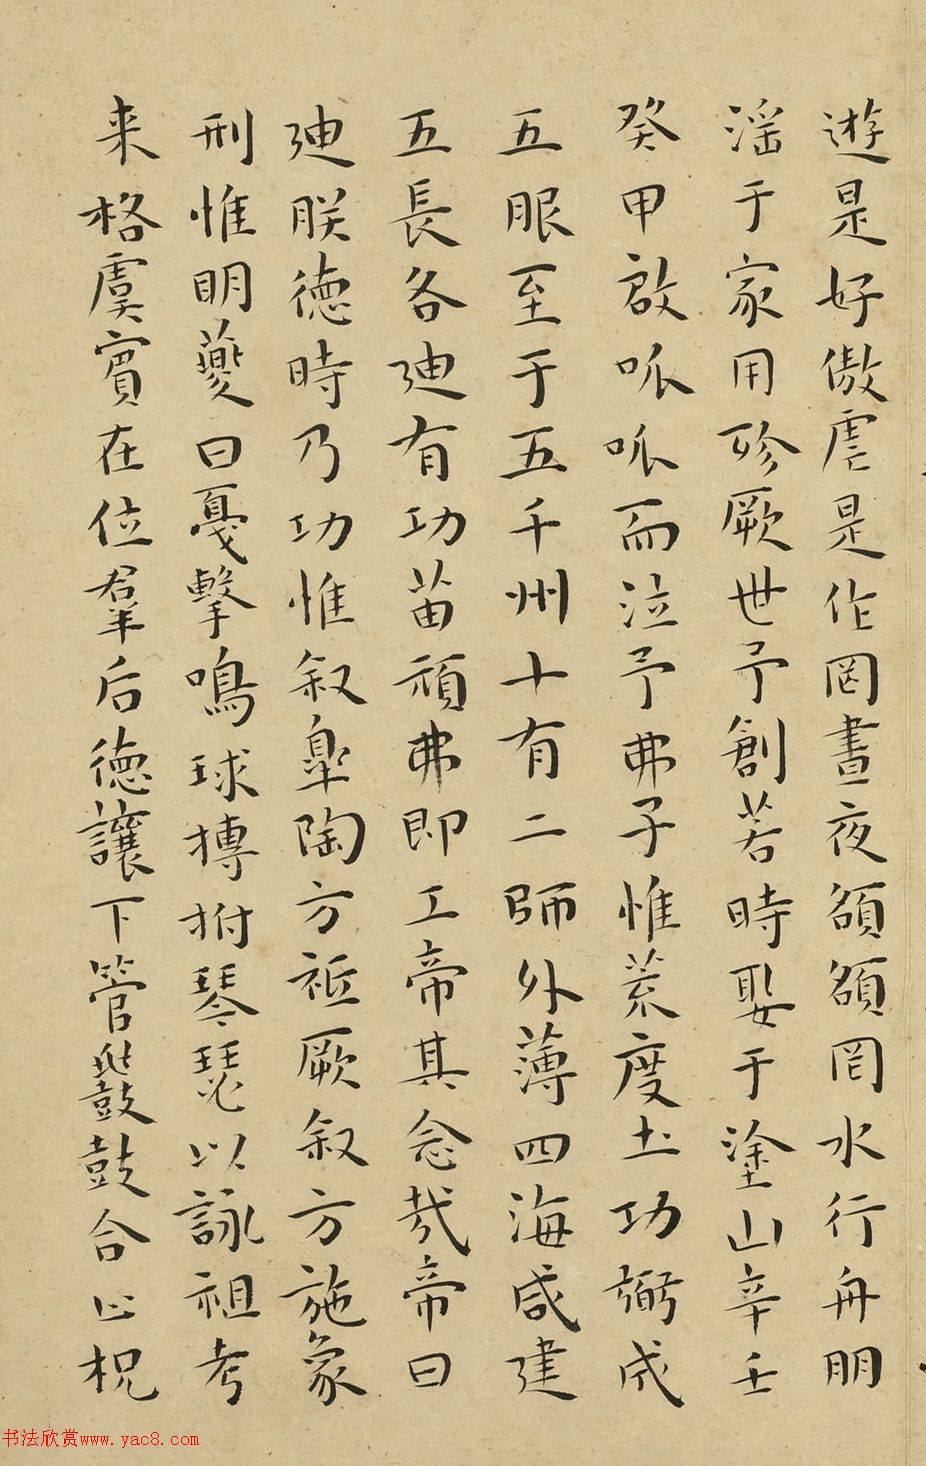 遊是好傲虐是作罔晝夜頟頟罔水行舟朋
滛于家用殄厥世予創若時娶于塗山辛壬
癸甲啟呱呱而泣予弗子惟荒度土功弼成
五服至于五千州十有二師外薄四海咸建
五長各迪有功苗頑弗即工帝其念哉帝曰
迪朕德時乃功惟叙皐陶方祗厥叙方施象
刑惟明夔曰戛擊鳴球搏拊琴瑟以詠祖考
来格虞賓在位羣后德讓下管鼗鼓合止柷
书法欣赏www.yac8.com